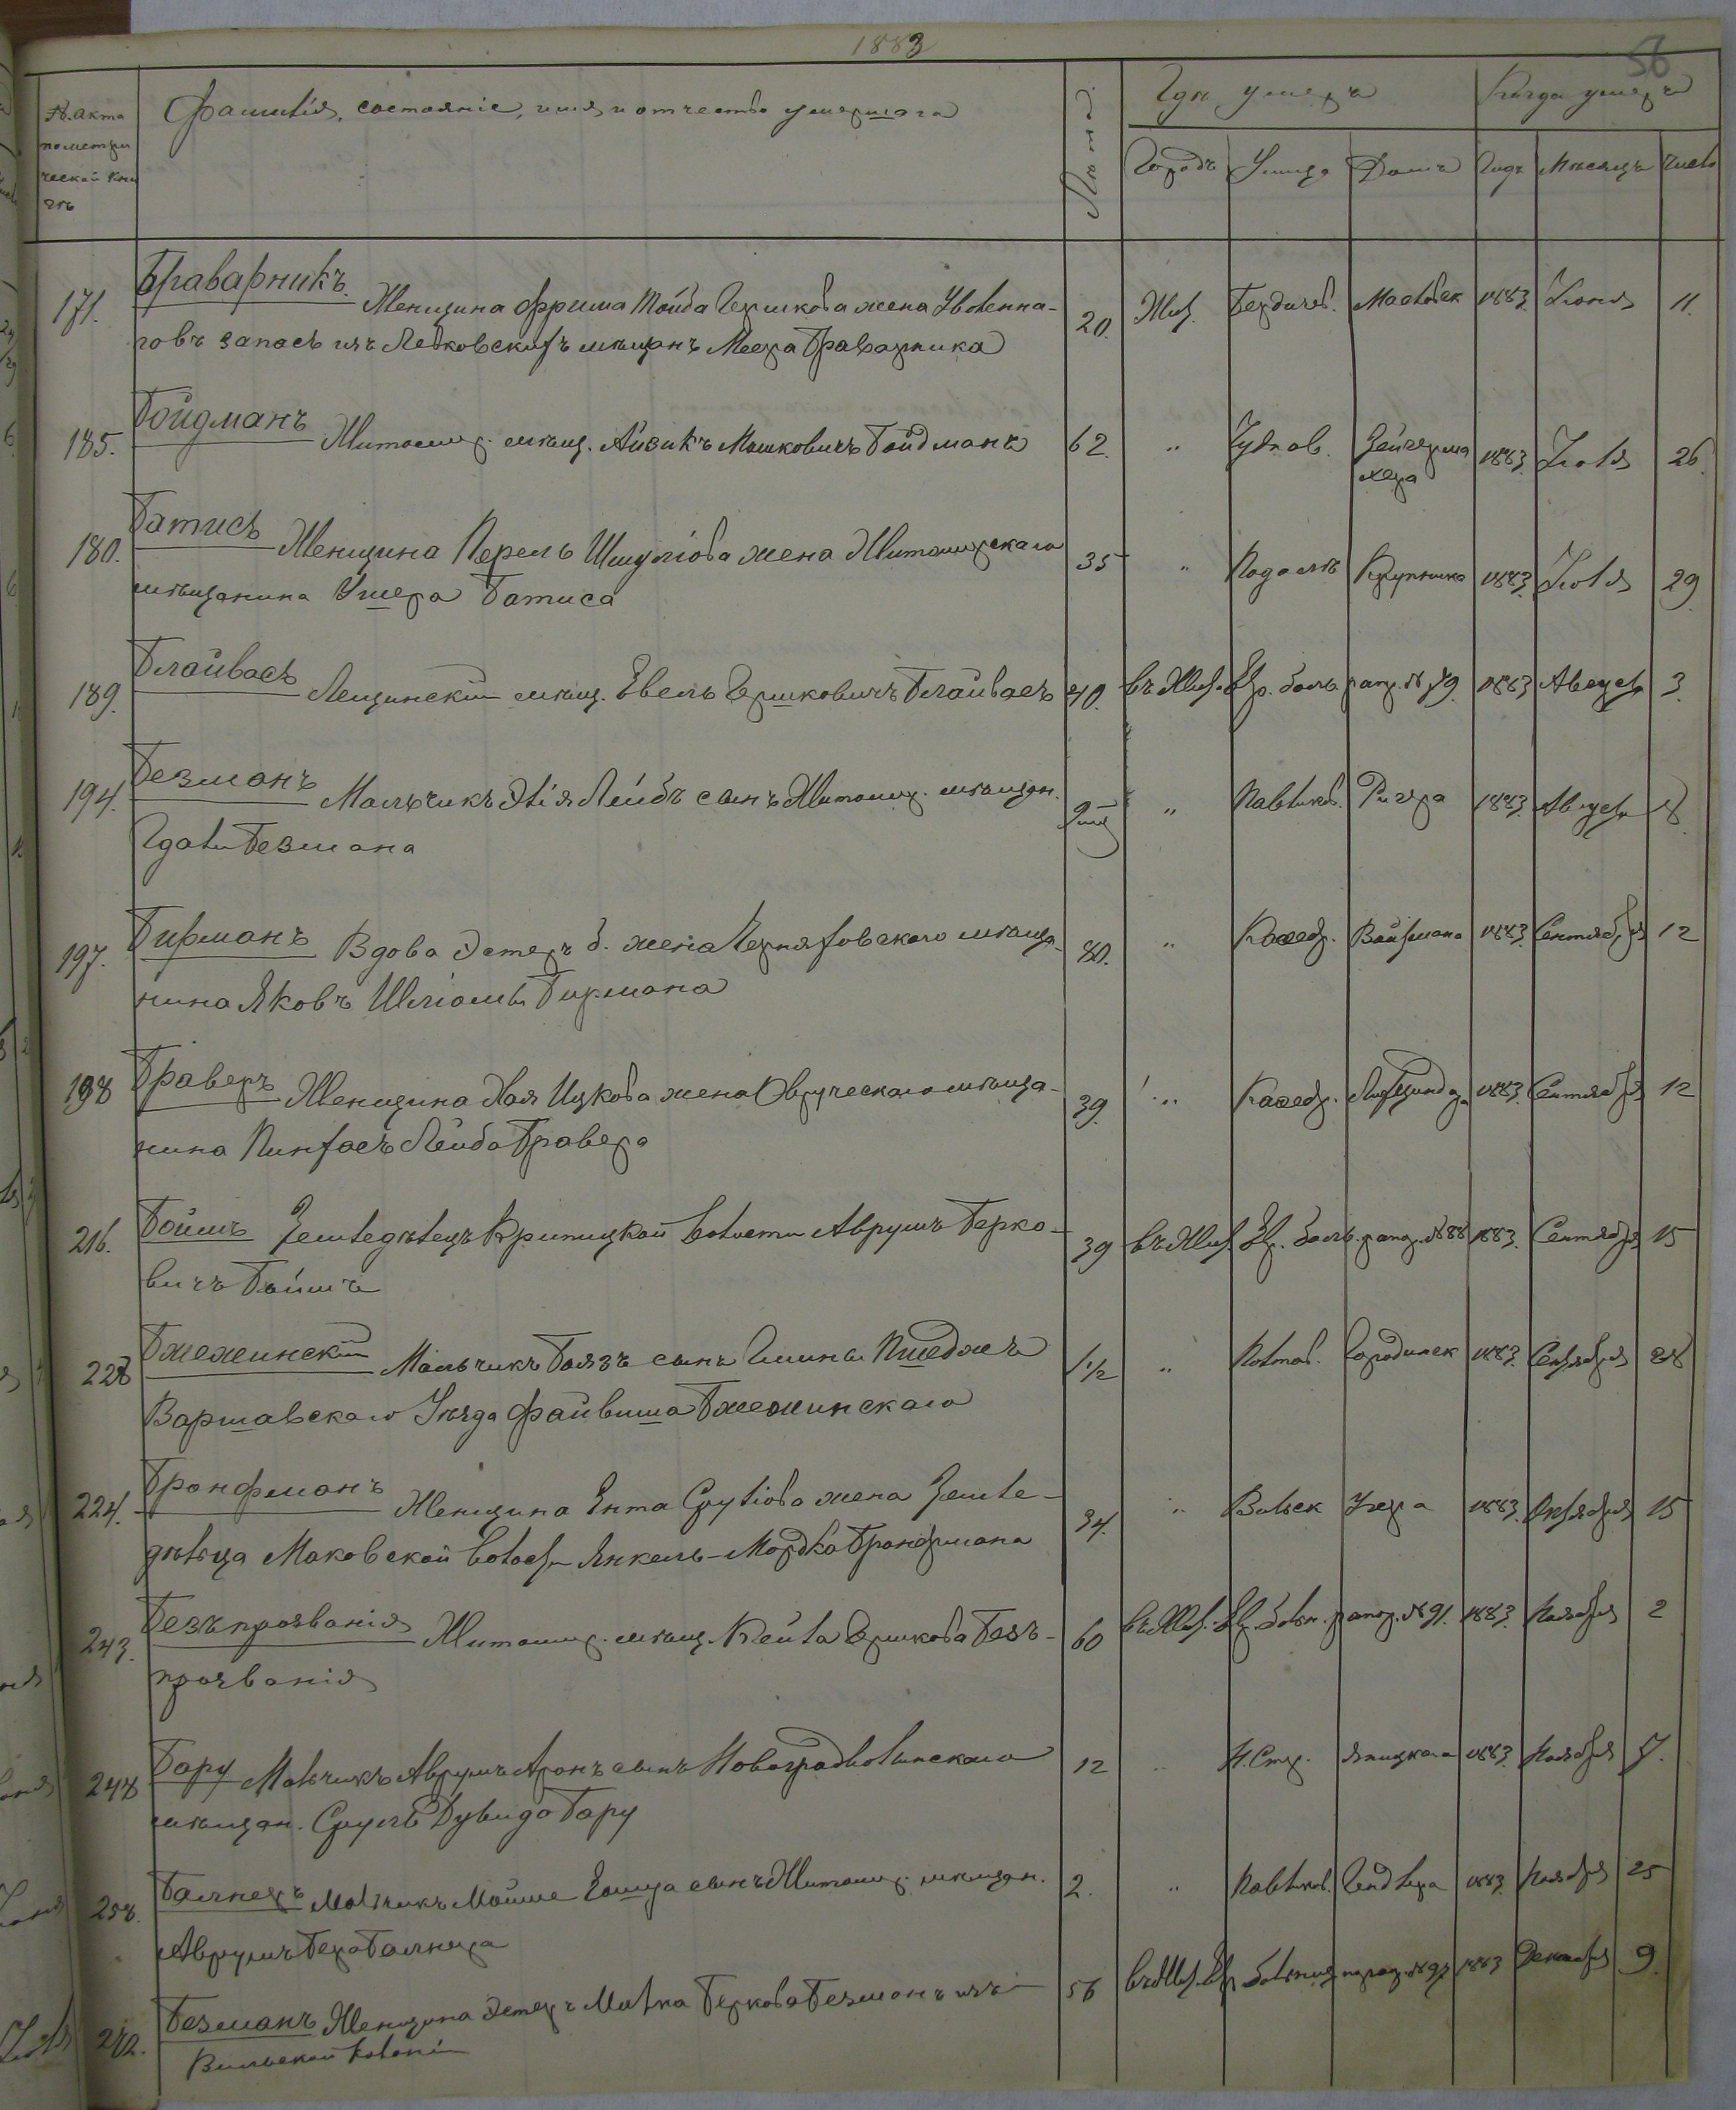 1883
56
№ акта
по метри
ческой кни
гѣ
Фамилія, состояніе, имя и отчество умершаго
Лѣта
Гдѣ умеръ
Когда умеръ
Городъ Улица Домъ Годъ Мѣсяцъ Число
171. Браварникъ. Женщина Фрима Тойба Гершкова жена Уволенна-
го въ запасъ изъ мѣщанъ Меера Браварника
20. Жит. Бердичев. 1883 Іюня 11.
185. Бойдманъ Житомир. мѣщ. Айзикъ Мошковичъ Бойдманъ
62. " Чуднов. Зейгерма
хера 1883 Іюля 26
180. Батисъ Женщина Перель Шмуліова жена Житомирскаго
мѣщанина Ушера Батиса
35 " Подолъ Крупника 1883 Іюля 29
189. Блайвасъ мѣщ. Евель Гершковичъ Блайвасъ
40. въ Жит. Евр. боль. рапор. № 79. 1883 Август. 3
194. Безманъ Мальчикъ Элія Лейбъ сынъ Житомир. мѣщан.
Гдали Безмана
" Павликов. Ригера 1883 Август. 8
197. Бирманъ Вдова Эстеръ б. жена Черняховскаго мѣща-
нина Яковъ Шліомы Бирмана
80. " Каѳедр. Вайсмана 1883 Сентября 12
198 Браверъ Женщина Хая Ицкова жена Овручскаго мѣща-
нина Пинхасъ Лейба Бравера
39. " Каѳедр. 1883 Сентября 12
216. Боймъ Земледѣлецъ волости Аврумъ Берко-
вичъ Боймъ
39 въ Жит. Евр. боль. рапор. № 88 1883. Сентября 15
228 Бжежинскій Мальчикъ сынъ Гмины
Варшавскаго Уѣзда Файвиша Бжежинскаго
1½ " Полтов. Городинск 1883. Сентября 28
224. Бронфманъ Женщина Ента Сруліова жена Земле-
дѣльца Маковской волости Янкель-Мордко Бронфмана
34. " Вильск 1883. Октября 15
243. Безъ прозванія Житомир. мѣщ. Кейла Гершкова Безъ-
прозванія
60 въ Жит. Евр. больн. рапор. № 91. 1883. Ноября 2
248 Бару Мальчикъ Аврумъ Аронъ сынъ Новоградволынскаго
мѣщан. Сруль Дувида Бару
12 " И. Стр. Япицкаго 1883. Ноября 7.
258. Балнеръ Мальчикъ Мойше сынъ Житомир. мѣщан.
Аврумъ Бера Балнера
2. " Павликов. Гендлера 1883. Ноября 25
272. Безманъ Женщина Эстеръ Малка Беркова Безманъ изъ
Вильской колоніи
56 въ Жит. Евр больниц. рапор. № 97 1883 Декабря 9.